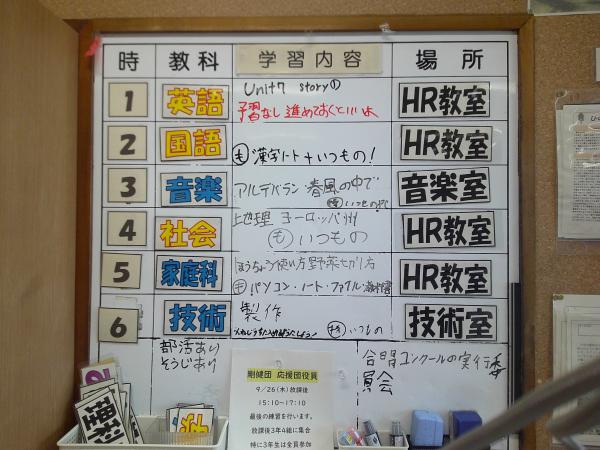 時 教科 学習内容 場所
1 英語 Unit7 story① HR教室
予習なし 進めておくといいよ
2 国語 ㋲漢字ノート+いつもの! HR教室
3 音楽 アルデバラン 春風の中で 音楽室
4 社会 地理 ヨーロッパ州 HR教室
㋲いつもの
5 家庭科 ほうちょう使い方 野菜 切り方 HR教室
㋲パソコン・ノート・ファイル
6 技術 製作 技術室
いつもの
部活あり
そうじあり
合唱コンクールの実行委
員会
剛健団 応援団役員
9/26(木)放課後
15:10~17:10
最後の練習を行います。
放課後3年4組に集合
特に3年生は全員参加
理科